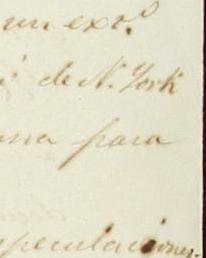 un exto.
de N. York
para
speculaciones.